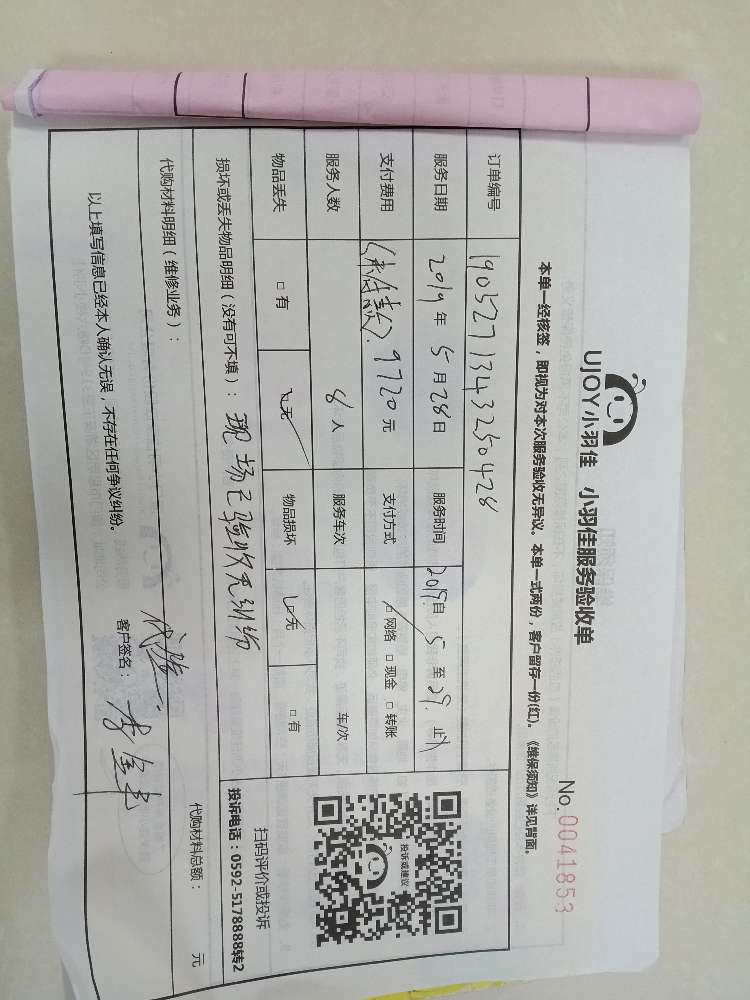 UJOY小羽佳 小羽佳服务验收单
No.0041853
本单一经核签，即视为对本次服务验收无异议。本单一式两份，客户留存一份(红)。《维保须知》详见背面。
订单编号 1905271343250428
服务日期 2019年5月28日 服务时间 2019.自5至29.止
支付费用 9720元 支付方式 □网络 □现金 □转账
服务人数 8人 服务车次 车/次
物品丢失 □有 □无 物品损坏 □无 □有
投诉或建议
扫码评价或投诉
投诉电话：0592-5178888转2
损坏或丢失物品明细（没有可不填）：现场已验收无纠纷
代购材料明细（维修业务）： 代购材料总额： 元
以上填写信息已经本人确认无误，不存在任何争议纠纷。 客户签名：